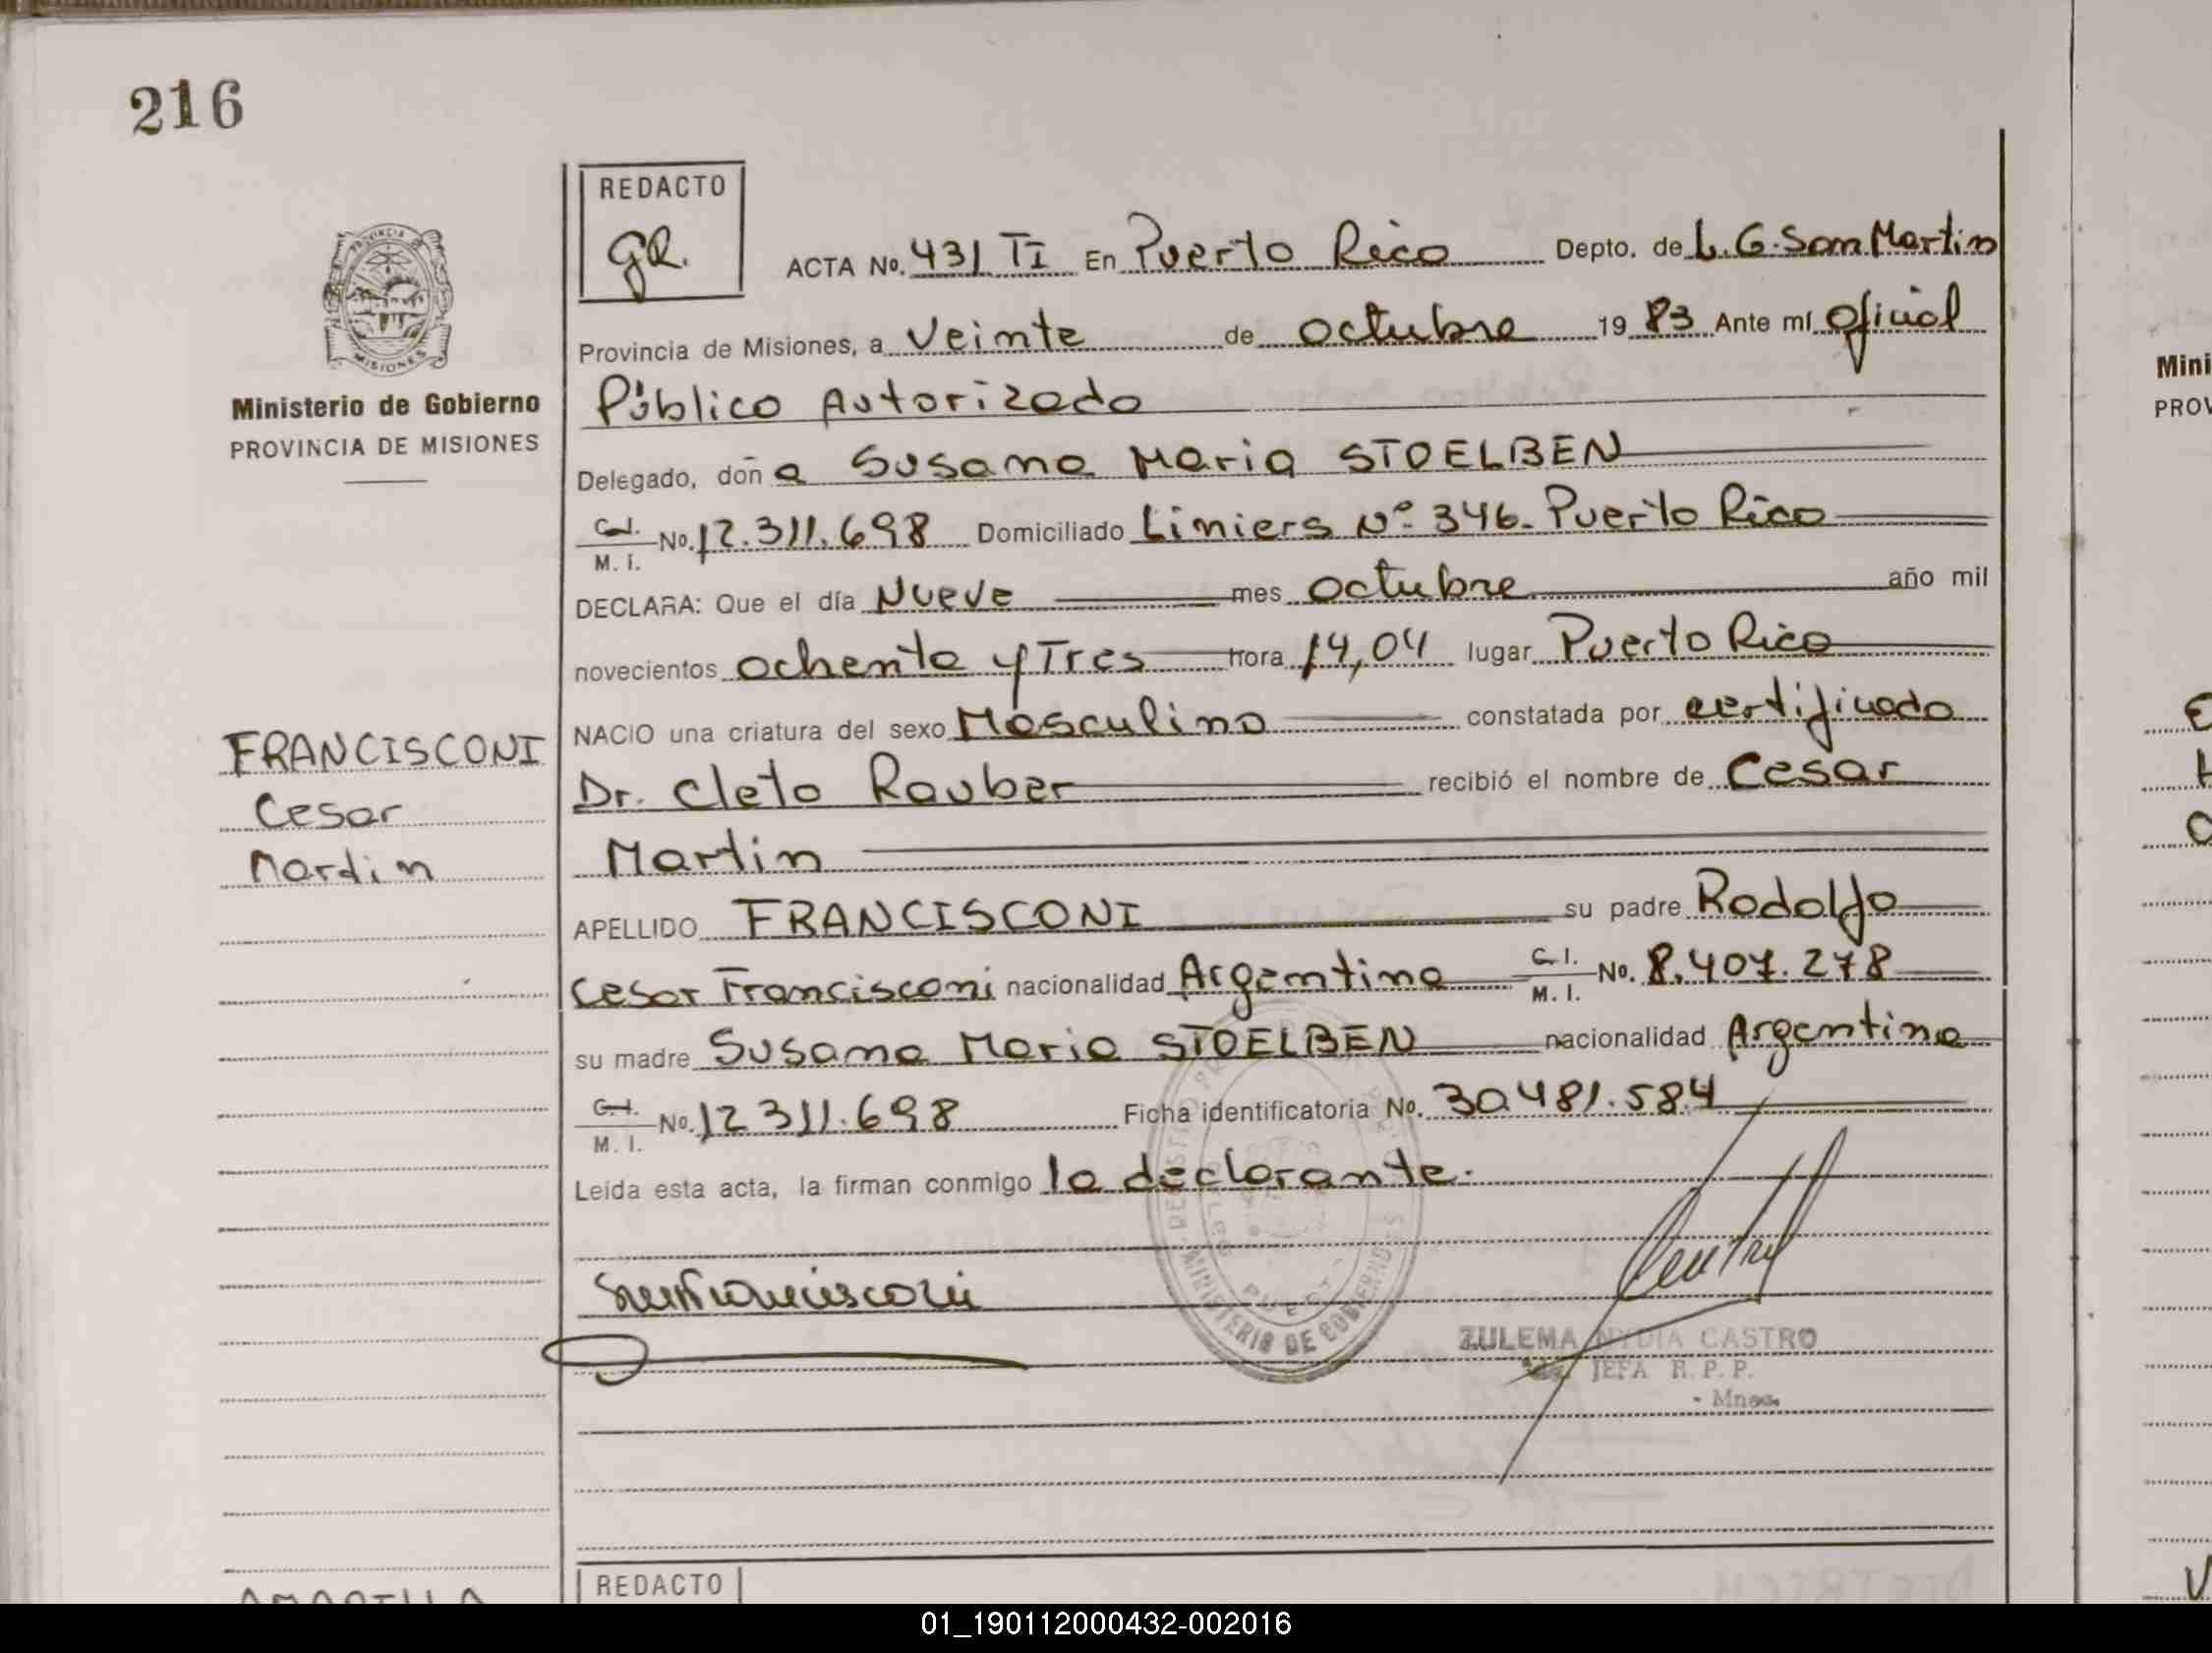 216
REDACTO
GR.
ACTA No. 431 TI En Puerto Rico Depto. de L.G. San Martin
Provincia de Misiones, a Veinte de octubre 19 83 Ante mí oficial
Público Autorizado
Delegado, doña Susana Maria STOELBEN
C.I. M.I. No. 12.311.698 Domiciliado Liniers Nº 346. Puerto Rico
DECLARA: Que el día Nueve mes octubre año mil
novecientos ochenta y Tres hora 14,04 lugar Puerto Rico
NACIO una criatura del sexo Masculino constatada por certificado
Dr. Cleto Rauber recibió el nombre de Cesar
Martin
APELLIDO FRANCISCONI su padre Rodolfo
Cesar Francisconi nacionalidad Argentina C.I. M.I. No. 8.407.278
su madre Susana Maria STOELBEN nacionalidad Argentina
C.I. M.I. No. 12 311.698 Ficha identificatoria No. 30.481.584
Leída esta acta, la firman conmigo la declarante.
ZULEMA NYDIA CASTRO
JEFA R.P.P.
- Mnes.
MINISTERIO DE GOBIERNO
PROVINCIA DE
MISIONES
Ministerio de Gobierno
PROVINCIA DE MISIONES
FRANCISCONI
Cesar
Martin
REDACTO
Mini
PROV
01_190112000432-002016